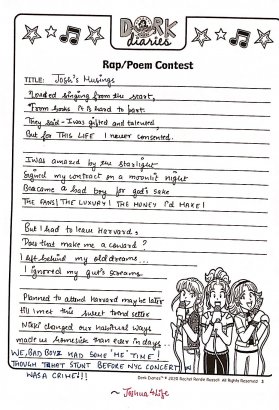 DORK
diaries
Rap/Poem Contest
TITLE: Josh's Musings
I loved singing from the start,
From books it is hard to part.
They said - I was gifted and talented,
But for THIS LIFE I never consented.
I was amazed by the starlight
Signed my contract on a moonlit night
Became a bad boy for god's sake
THE FANS! THE LUXURY! THE MONEY I'd MAKE!
But I had to leave Harvard,
Does that make me a coward?
I left behind my old dreams...
I ignored my gut's screams
Planned to attend Harvard maybe later
till I met this sweet trend setter
Nikki changed our habitual ways
made us homesick than ever in days...
WE, BAD BOYZ HAD SOME 'ME TIME'!
THOUGH THAT STUNT BEFORE NYC CONCERT
WAS A CRIME!!!
Dork Diaries™ © 2020 Rachel Renée Russell. All Rights Reserved
3
~ Joshua 4 Life